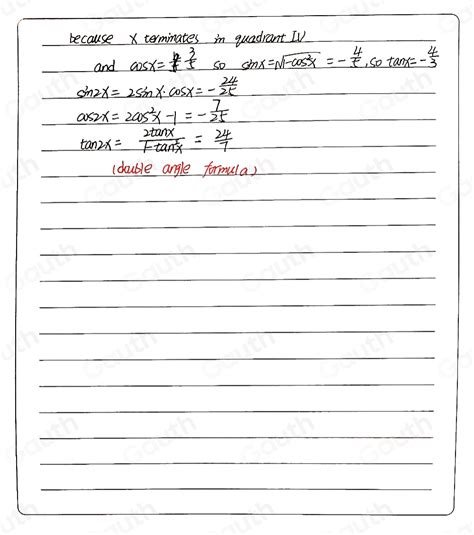 because x terminates in quadrant IV
and cosx = 3/5 so sinx = √1-cos²x = -4/5, so tanx = -4/3
sin2x = 2sinx·cosx = -24/25
cos2x = 2cos²x - 1 = -7/25
tan2x = 2tanx/1-tan²x = 24/7
(double angle formula)
Gauth